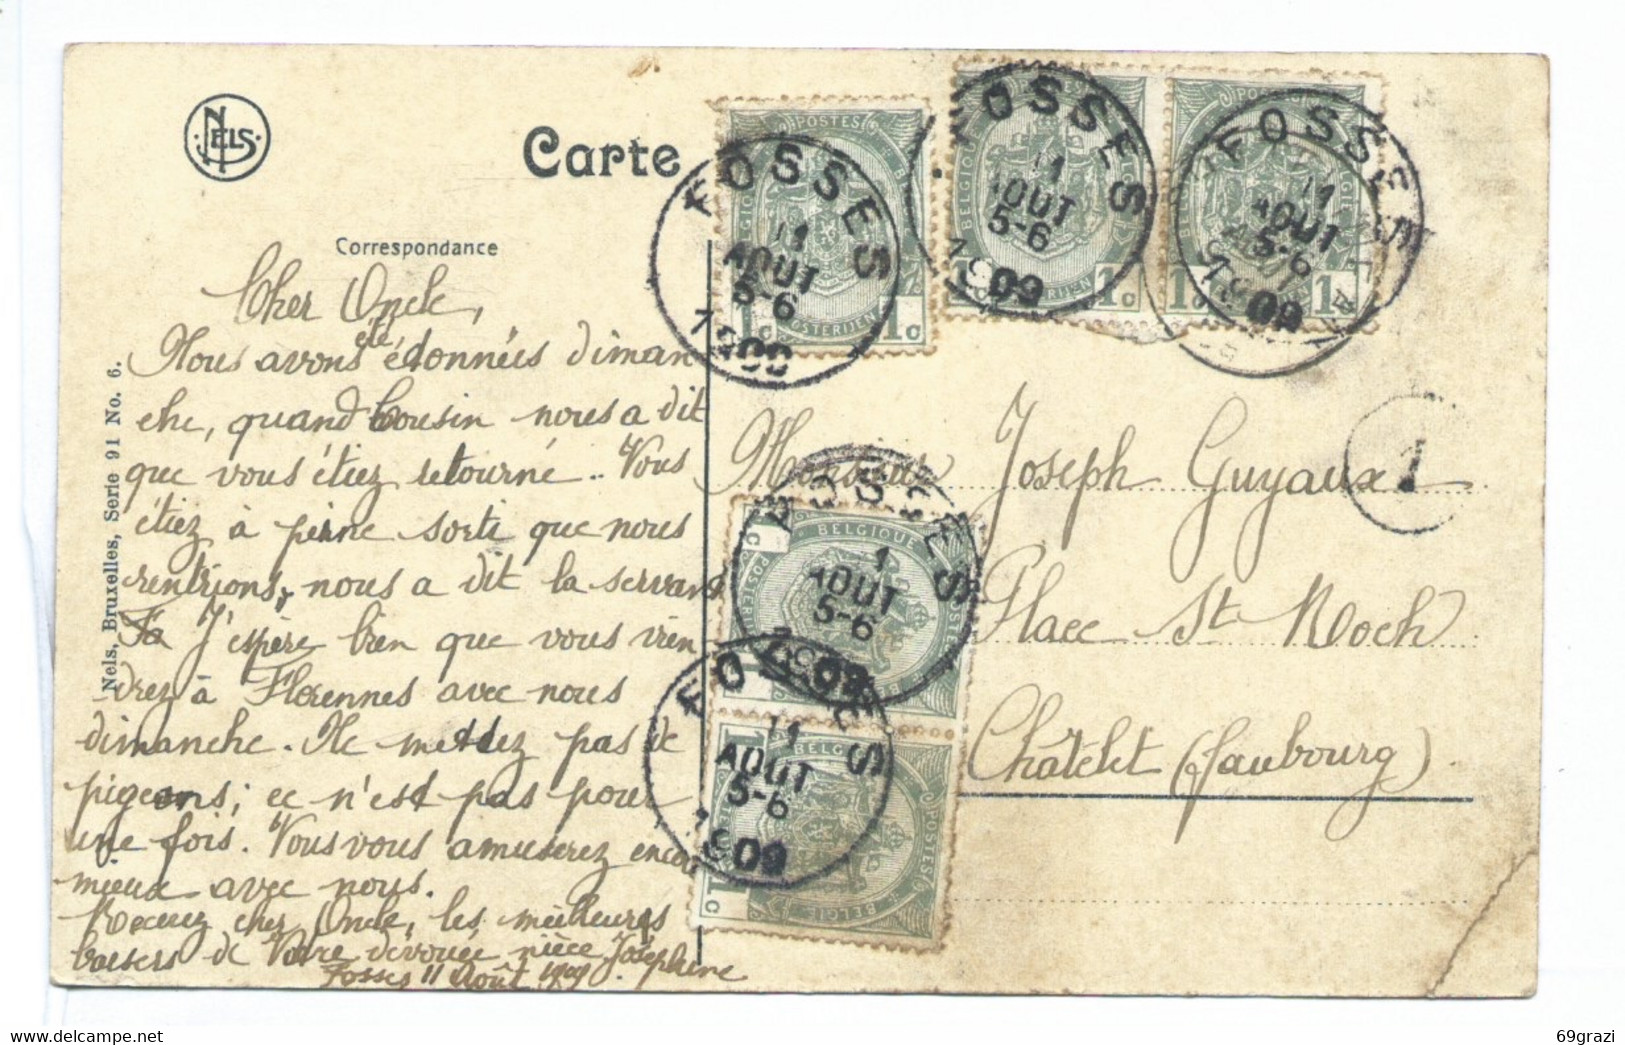 NELS
Carte
Correspondance
Nels, Bruxelles, Serie 91 No. 6.
Cher Oncle,
Nous avons été étonnées diman
che, quand Cousin nous a dit
que vous étiez retourné.. Vous
étiez à peine sorti que nous
rentrions, nous a dit la servante
J'espère bien que vous vien
drez à Florennes avec nous
dimanche. Ne mettez pas de
pigeons; ce n'est pas pour
une fois. Vous vous amuserez encore
mieux avec nous.
Recevez cher Oncle, les meilleures
baisers de Votre dévouée nièce Joséphine
Fosses 11 Août 1909.
Monsieur Joseph Guyaux
Place St Roch
Châtelet (faubourg).
1
FOSSES
11
AOUT
5-6
1909
FOSSES
11
AOUT
5-6
1909
FOSSES
11
AOUT
5-6
1909
FOSSES
11
AOUT
5-6
1909
FOSSES
11
AOUT
5-6
1909
POSTES
BELGIQUE
POSTERIJEN
1c
BELGIQUE
1c
1c
BELGIQUE
POSTERIJEN
1c
POSTES
BELGIE
1c
69grazi
www.delcampe.net